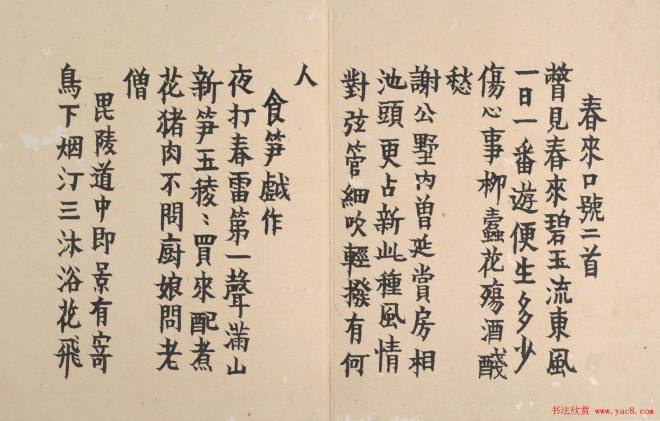 春來口號二首
瞥見春來碧玉流東風
一日一番遊便生多少
傷心事柳蠹花殤酒醆
愁
謝公墅內曽延賞房相
池頭更占新此種風情
對弦管細吹輕撥有何
人
食笋戲作
夜打春雷第一聲滿山
新笋玉稜〻買來配煮
花猪肉不問厨娘問老
僧
毘陵道中即景有寄
鳥下烟汀三沐浴花飛
书法欣赏
www.yac8.com